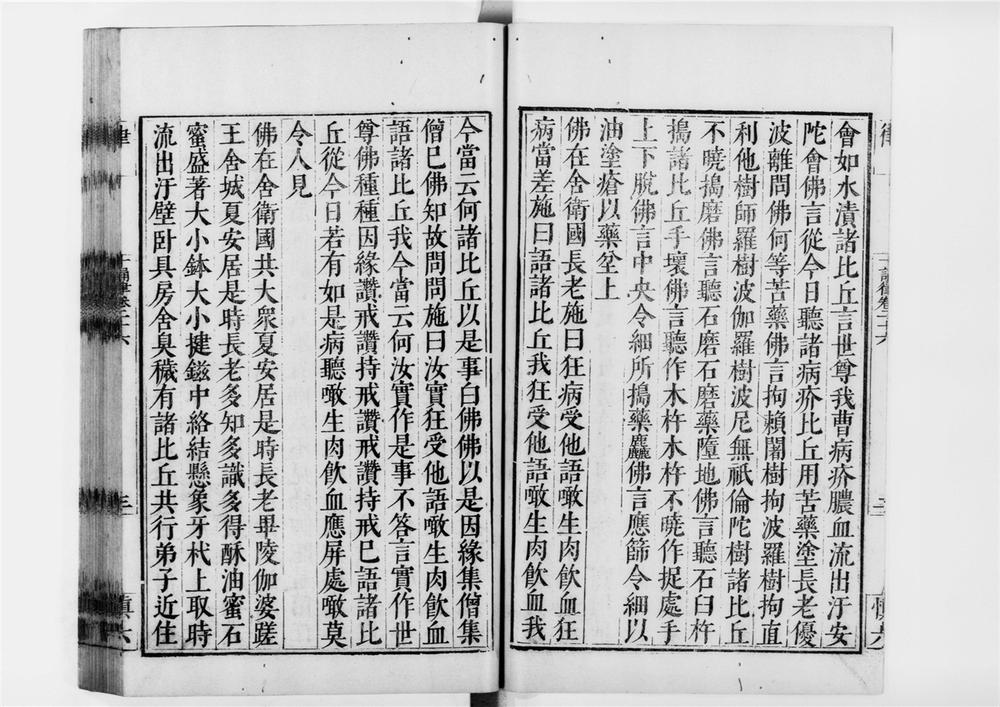 會如水漬諸比丘言世尊我曹病疥膿血流出汙安
陀會佛言從今日聽諸病疥比丘用苦藥塗長老優
波離問佛何等苦藥佛言拘賴闍樹拘波羅樹拘直
利他樹師羅樹波伽羅樹波尼無祇倫陀樹諸比丘
不曉擣磨佛言聽石磨石磨藥墮地佛言聽石臼杵
擣諸比丘手壞佛言聽作木杵木杵不曉作捉處手
上下脫佛言中央令細所擣藥麤佛言應篩令細以
油塗瘡以藥坌上
佛在舍衛國長老施曰狂病受他語噉生肉飲血狂
病當差施曰語諸比丘我狂受他語噉生肉飲血我
今當云何諸比丘以是事白佛佛以是因緣集僧集
僧已佛知故問問施曰汝實狂受他語噉生肉飲血
語諸比丘我今當云何汝實作是事不答言實作世
尊佛種種因緣讚戒讚持戒讚戒讚持戒已語諸比
丘從今日若有如是病聽噉生肉飲血應屏處噉莫
令人見
佛在舍衛國共大衆夏安居是時長老畢陵伽婆蹉
王舍城夏安居是時長老多知多識多得酥油蜜石
蜜盛著大小鉢大小揵鎡中絡結懸象牙杙上取時
流出汙壁臥具房舍臭穢有諸比丘共行弟子近住
律
三
慎六